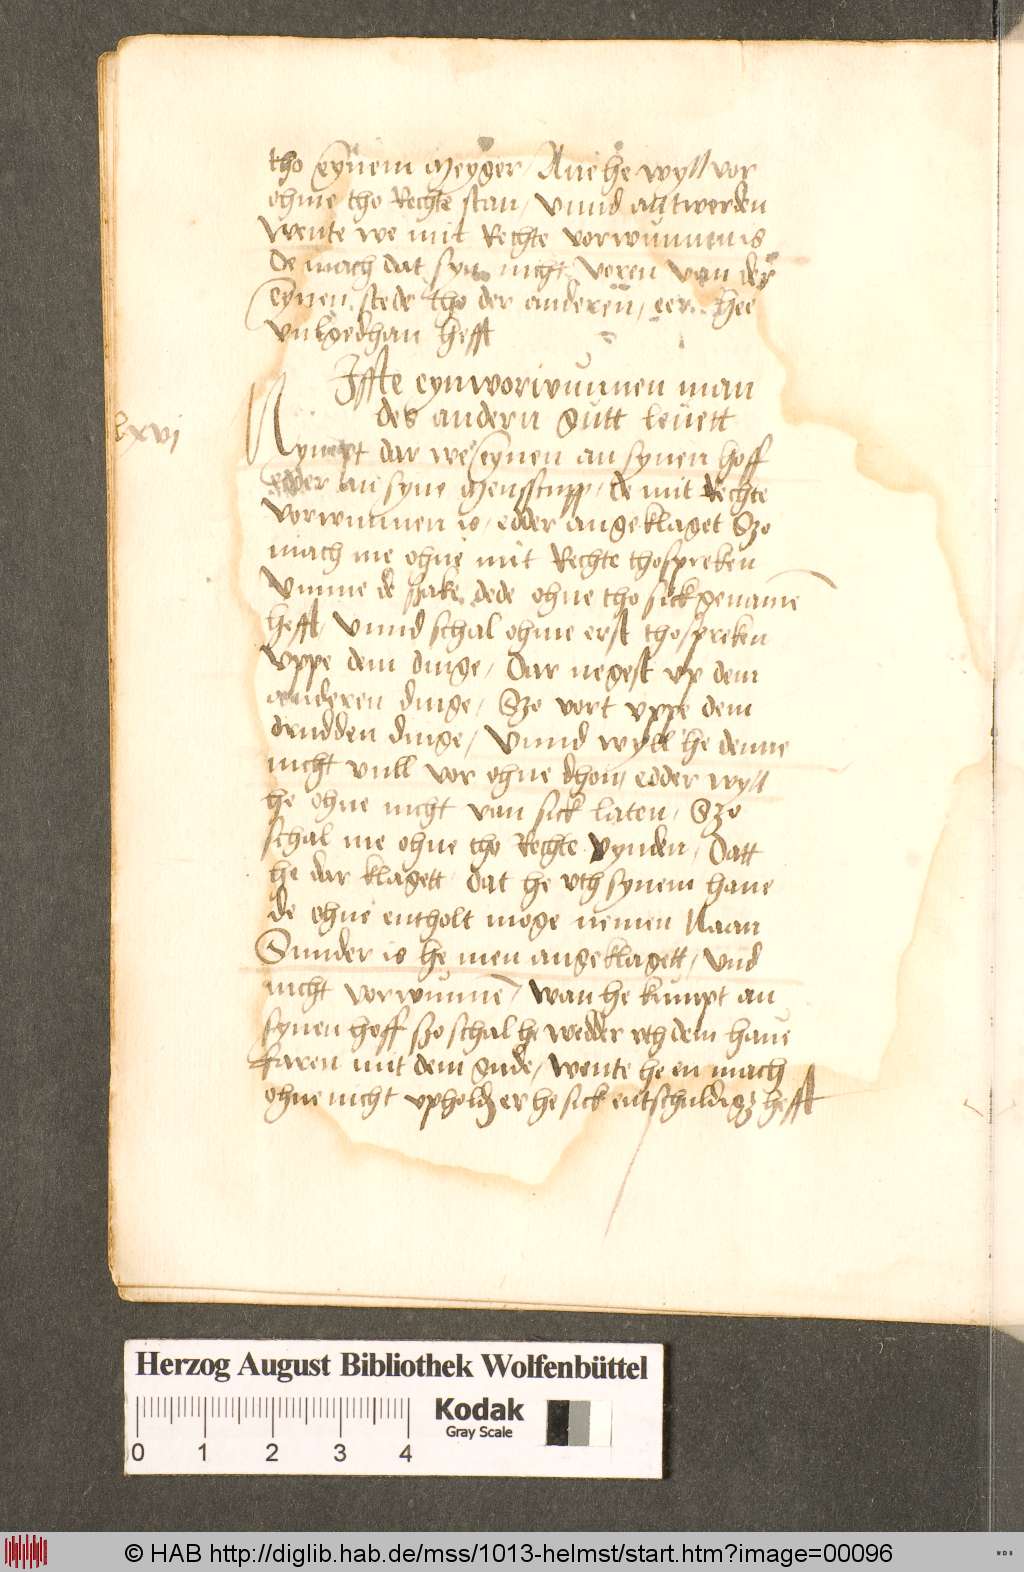 tho eynem meyger / Ane he wyll vor
ohme tho Rechte stan / Vnnd antwerden
Wente we mit Rechte vorwunnen is
de mach dat syn nicht voren van der
eynen stede tho der anderen / eer hee
vulgedhan hefft
Iffte eyn vorwunnen man
des andern gutt leuett
lxvi
Nympt dar we eynen an synen hoff
edder an syne menscupp / de mit Rechte
vorwunnen is / edder angeklaget Szo
mach me ohne mit Rechte thospreken
Vmme de sake dede ohne tho sick genamē
hefft / Vnnd schal ohme erst thospreken
Vppe dem dinge / Dar negest vp dem
anderen dinge / Szo vort vppe dem
drudden dinge / Vnnd wyll he denne
nicht vull vor ohne dhon / edder wyll
he ohne nicht van sick laten / Szo
schal me ohne tho Rechte vynden / Datt
he dar klagett dat he vth synem haue
de ohne entholt moge nemen
Sunder is he men angeklagett / Vnd
nicht vorwunnē / wan he kumpt an
synen hoff szo schal he wedder vth dem haue
faren mit dem gude / wente he en mach
ohne nicht vpholdē er he sick entschuldigē hefft
Herzog August Bibliothek Wolfenbüttel
Kodak
Gray Scale
0 1 2 3 4
© HAB http://diglib.hab.de/mss/1013-helmst/start.htm?image=00096